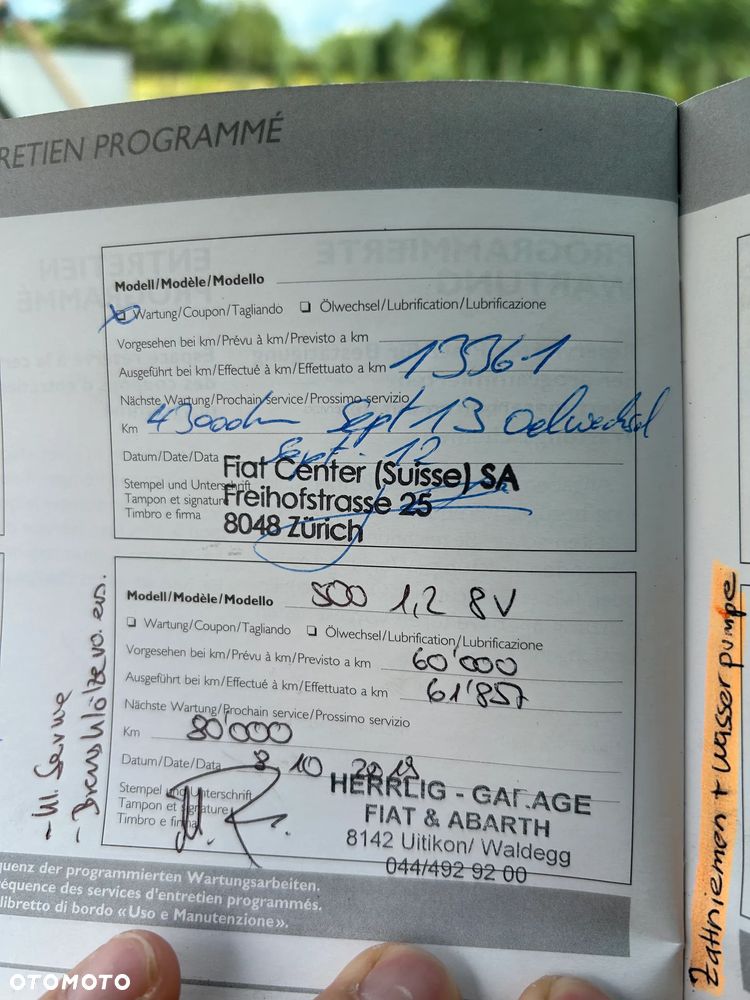 RETIEN PROGRAMMÉ
Modell/Modèle/Modello
Wartung/Coupon/Tagliando ❑ Ölwechsel/Lubrification/Lubrificazione
Vorgesehen bei km/Prévu à km/Previsto a km
Ausgeführt bei km/Effectué à km/Effettuato a km 13361
Nächste Wartung/Prochain service/Prossimo servizio
Km 43000km Sept 13 Oelwechsel
Datum/Date/Data Sept. 12
Stempel und Unterschrift
Tampon et signature
Timbro e firma
Fiat Center (Suisse) SA
Freihofstrasse 25
8048 Zürich
Modell/Modèle/Modello 500 1,2 8V
❑ Wartung/Coupon/Tagliando ❑ Ölwechsel/Lubrification/Lubrificazione
Vorgesehen bei km/Prévu à km/Previsto a km 60'000
Ausgeführt bei km/Effectué à km/Effettuato a km 61'857
Nächste Wartung/Prochain service/Prossimo servizio
Km 80'000
Datum/Date/Data 8 10 2019
Stempel und Unterschrift
Tampon et signature
Timbro e firma
HERRLIG - GARAGE
FIAT & ABARTH
8142 Uitikon/ Waldegg
044/492 92 00
quenz der programmierten Wartungsarbeiten.
réquence des services d'entretien programmés.
libretto di bordo «Uso e Manutenzione».
Zahnriemen + Wasserpumpe
OTOMOTO